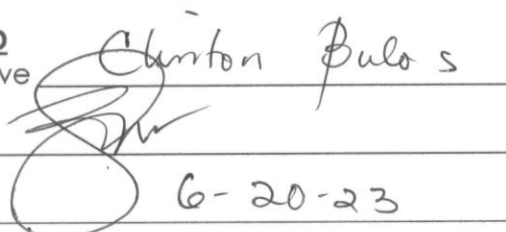 Clinton Bulos
6-20-23